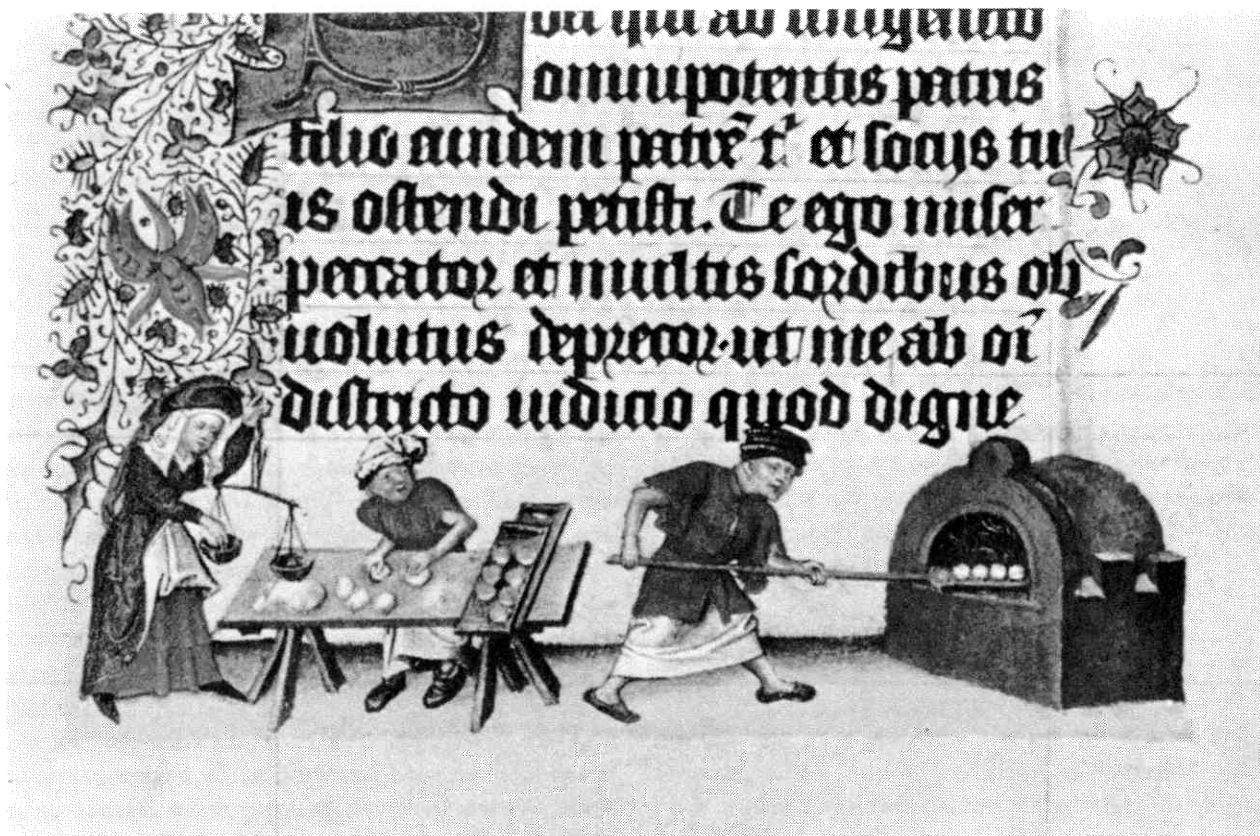 qui ab unigenito
omnipotentis patris
filio eundem patrē t' et socijs tu
is ostendi petisti. Te ego miser
peccator et multis sordibus ob
uolutus deprecor· ut me ab oī
districto iudicio quod digne